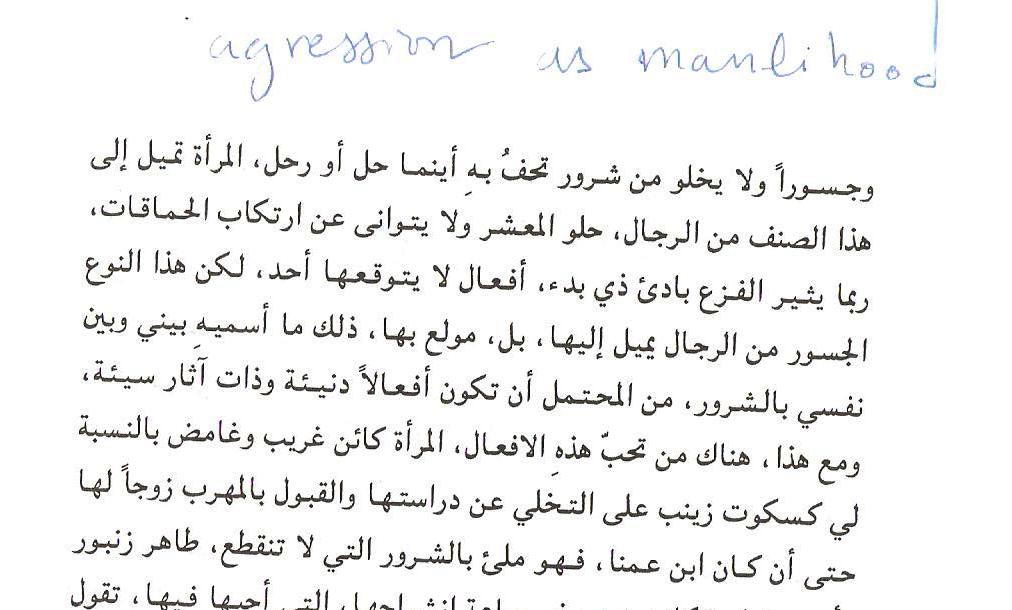 agression as manlihood
وجسوراً ولا يخلو من شرور تحفُ بهِ أينما حل أو رحل، المرأة تميل إلى
هذا الصنف من الرجال، حلو المعشر ولا يتوانى عن ارتكاب الحماقات،
ربما يثير الفزع بادئ ذي بدء، أفعال لا يتوقعها أحد، لكن هذا النوع
الجسور من الرجال يميل إليها، بل، مولع بها، ذلك ما أسميهِ بيني وبين
نفسي بالشرور، من المحتمل أن تكون أفعالاً دنيئة وذات آثار سيئة،
ومع هذا، هناك من تحبّ هذهِ الافعال، المرأة كائن غريب وغامض بالنسبة
لي كسكوت زينب على التخلي عن دراستها والقبول بالمهرب زوجاً لها
حتى أن كان ابن عمنا، فهو ملئ بالشرور التي لا تنقطع، طاهر زنبور
ساعة انشراحها، التي أحبها فيها، تقول